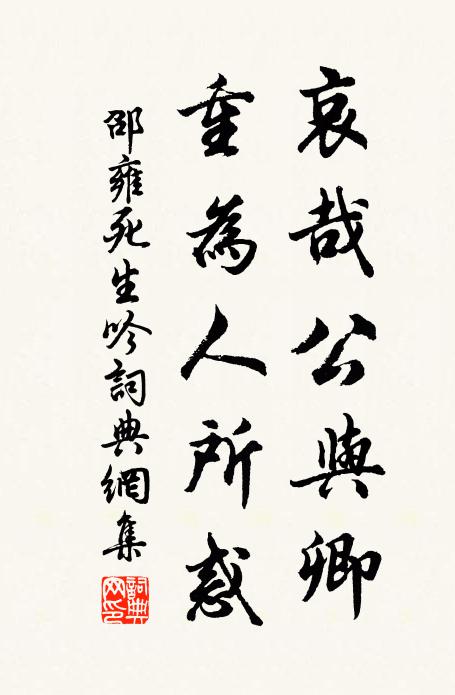 哀哉公與卿
重為人所惑
邵雍死生吟詞典網集
詞典網印